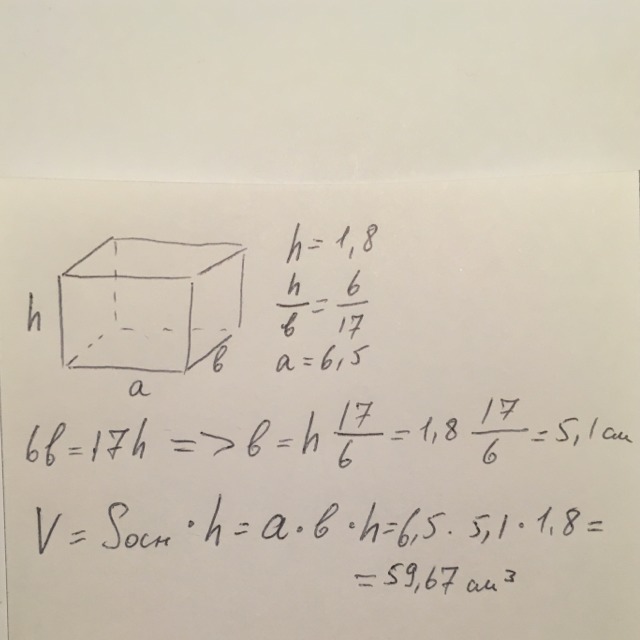 h = 1,8
h/в = 6/17
a = 6,5
h
в
a
6в = 17h => в = h 17/6 = 1,8 17/6 = 5,1 см
V = Sосн · h = a · в · h = 6,5 · 5,1 · 1,8 =
= 59,67 см³